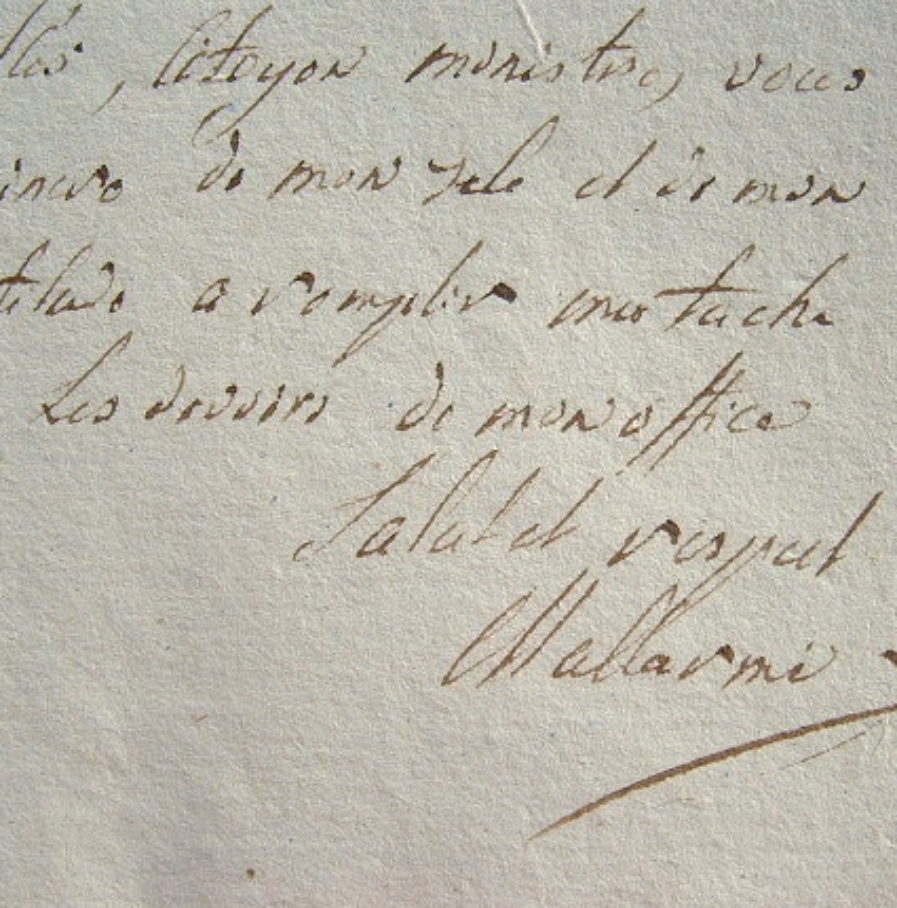 , Citoyen ministre, vous
de mon zele et de mon
a remplir ma tache
Les devoirs de mon office
Salut et respect
Mallarmé